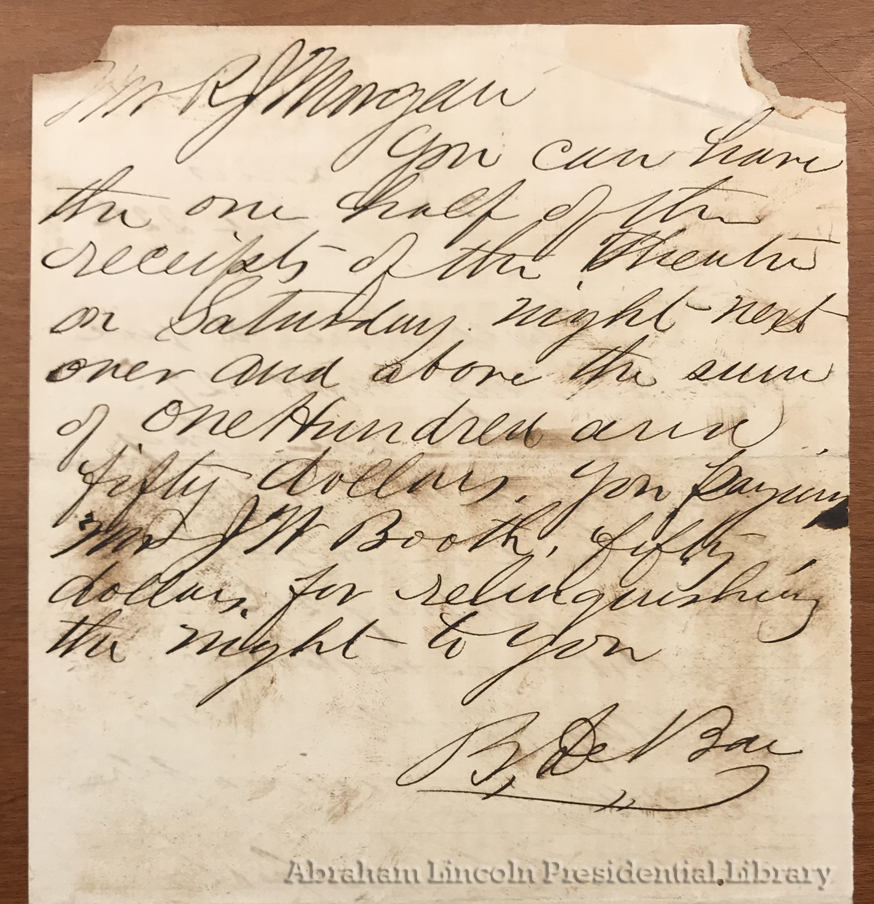 Mr R J Morgan
You can have
the one half of the
receipts of the Theatre
on Saturday night next
over and above the sum
of One Hundred and
fifty dollars, you paying
Mr J W Booth, fifty
dollars for relinquishing
the night to you
B, De Bar
Abraham Lincoln Presidential Library